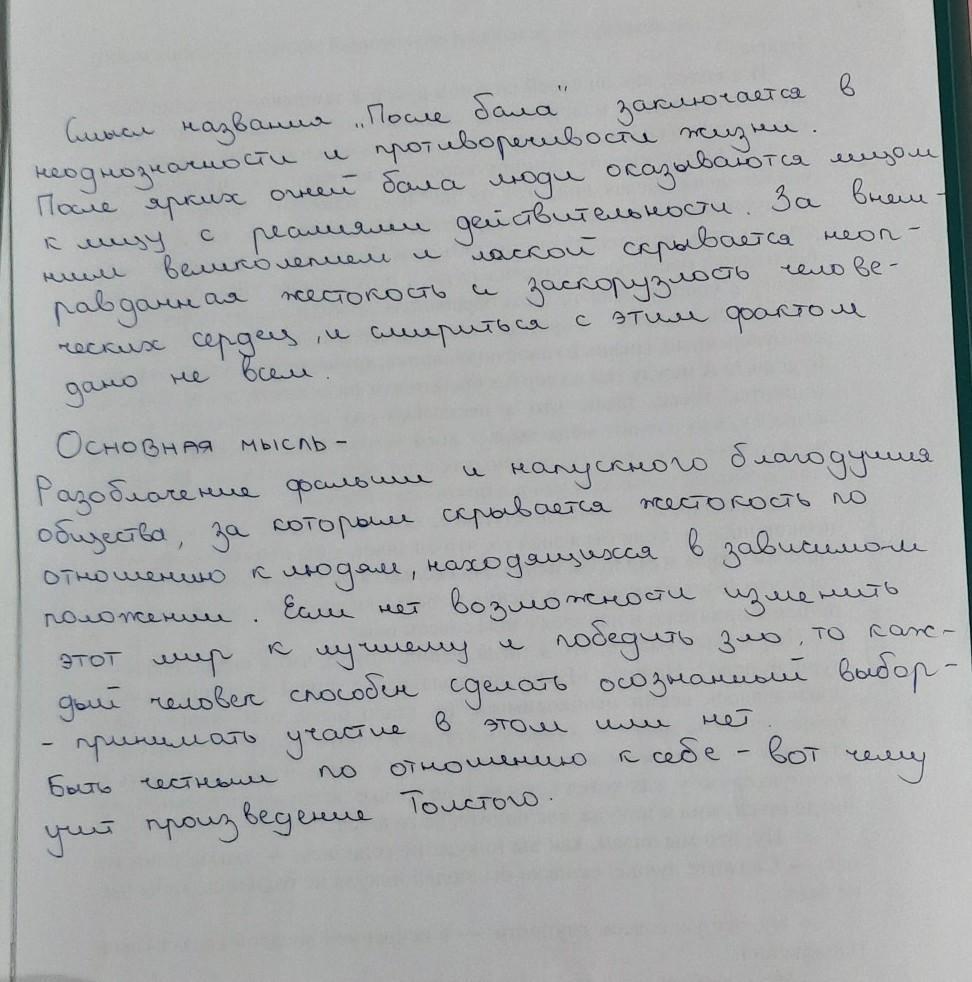 Смысл названия „После бала" заключается в
неоднозначности и противоречивости жизни.
После ярких огней бала люди оказываются лицом
к лицу с реалиями действительности. За внеш-
ним великолепием и лаской скрывается неоп-
равданная жестокость и заскорузлость челове-
ческих сердец, и смириться с этим фактом
дано не всем.
Основная мысль -
Разоблачение фальши и напускного благодушия
общества, за которым скрывается жестокость по
отношению к людям, находящихся в зависимом
положении. Если нет возможности изменить
этот мир к лучшему и победить зло, то каж-
дый человек способен сделать осознанный выбор -
- принимать участие в этом или нет.
Быть честным по отношению к себе - вот чему
учит произведение Толстого.